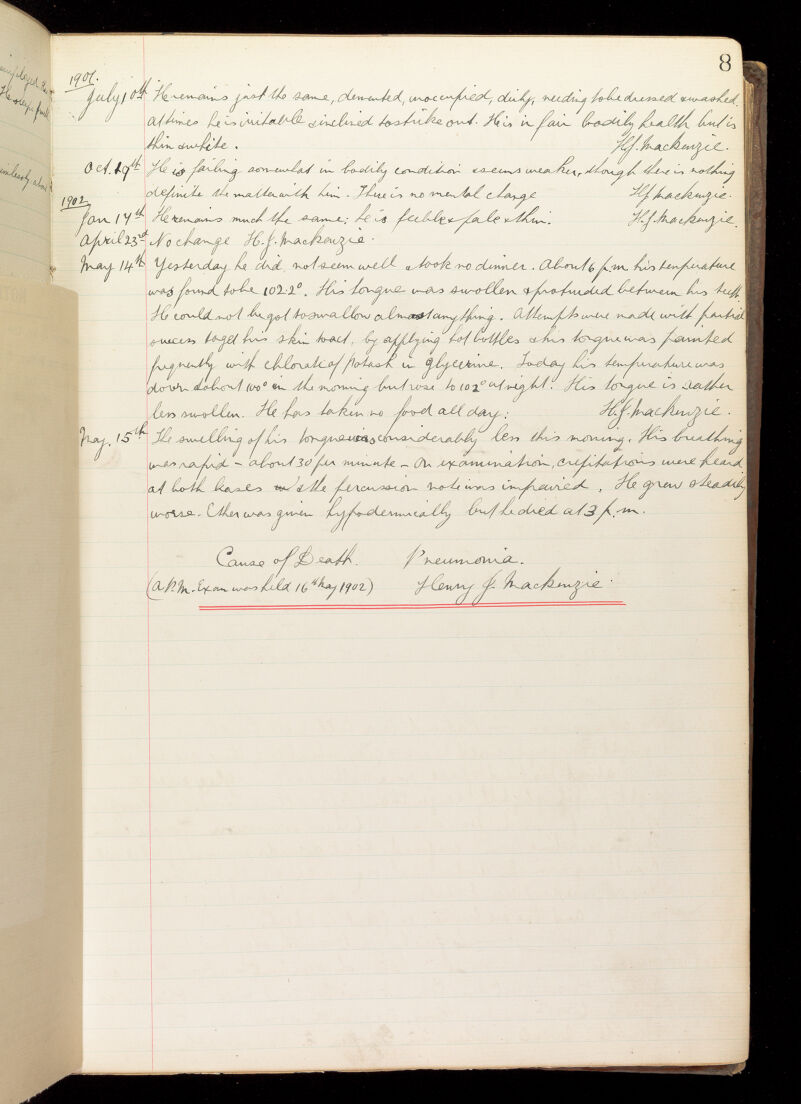 8
1901.
July 10th He remains just the same, demented, unoccupied, dirty, needing to be dressed & washed.
at times he is irritable & inclined to strike out. He is in fair bodily health but is
thin & white. H.J. Mackenzie.
Oct. 19th He is failing somewhat in bodily condition & seems weaker, though there is nothing
definite the matter with him. There is no mental change H.J. Mackenzie.
1902
Jan 14th He remains much the same; he is feeble & pale & thin. H.J. Mackenzie.
April 23rd No change H.J. Mackenzie.
May 14th Yesterday he did not seem well & took no dinner. About 6 p.m his temperature
was found to be 102.2°. His tongue was swollen & protruded between his teeth
He could not be got to swallow almost anything. Attempts were made with partial
success to get his skin to act, by applying hot bottles & his tongue was painted
frequently with chlorate of potash in glycerine. Today his temperature was
down to about 100° in the morning but rose to 102° at night. His tongue is rather
less swollen. He has taken no food all day. H.J. Mackenzie.
May. 15th The swelling of his tongue was considerably less this morning. His breathing
was rapid – about 30 per minute – On examination, crepitations were heard
at both bases & the percussion note was impaired. He grew steadily
worse. Ether was given hypodermically but he died at 3 p.m.
Cause of Death. Pneumonia.
(A P.M. Exam was held 16th May 1902) Henry J. Mackenzie.